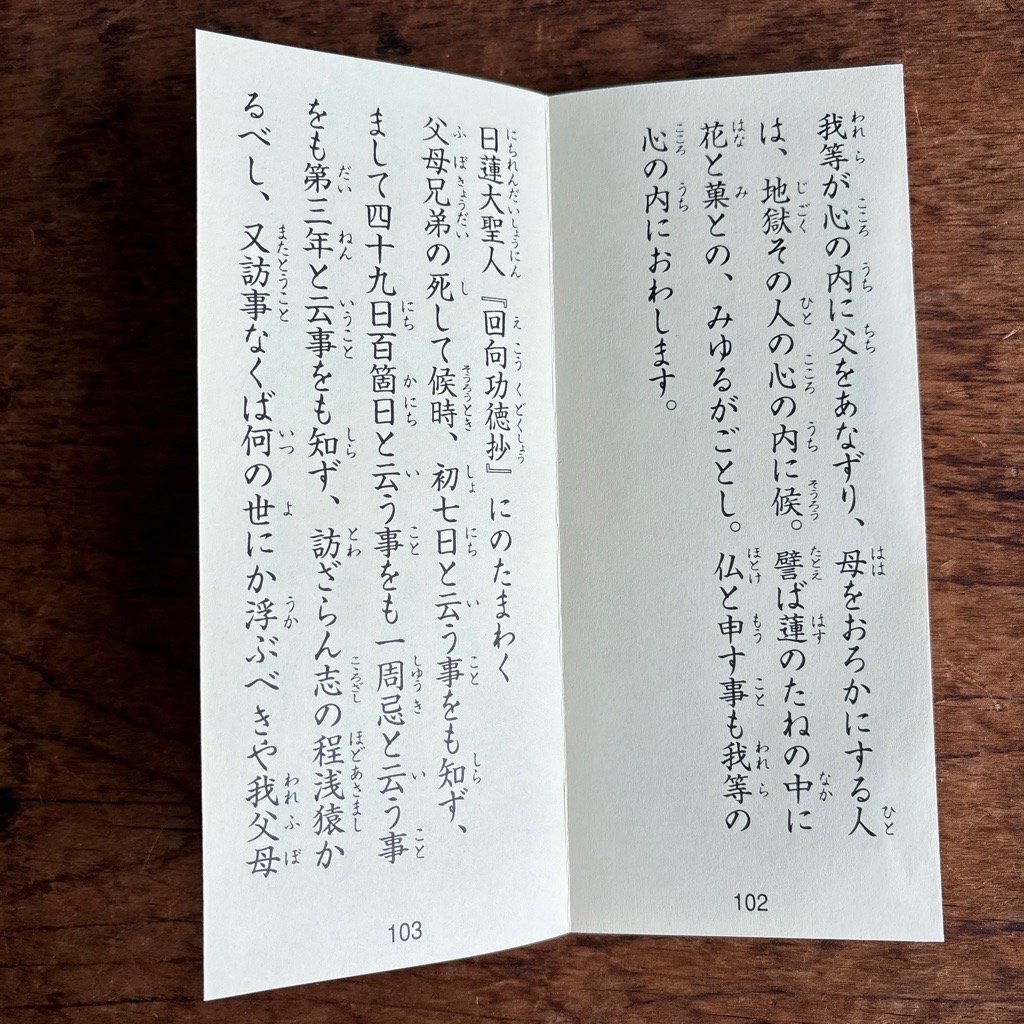 我等が心の内に父をあなずり、母をおろかにする人
は、地獄その人の心の内に候。譬ば蓮のたねの中に
花と菓との、みゆるがごとし。仏と申す事も我等の
心の内におわします。
102
日蓮大聖人『回向功徳抄』にのたまわく
父母兄弟の死して候時、初七日と云う事をも知ず、
まして四十九日百箇日と云う事をも一周忌と云う事
をも第三年と云事をも知ず、訪ざらん志の程浅猿か
るべし、又訪事なくば何の世にか浮ぶべきや我父母
103